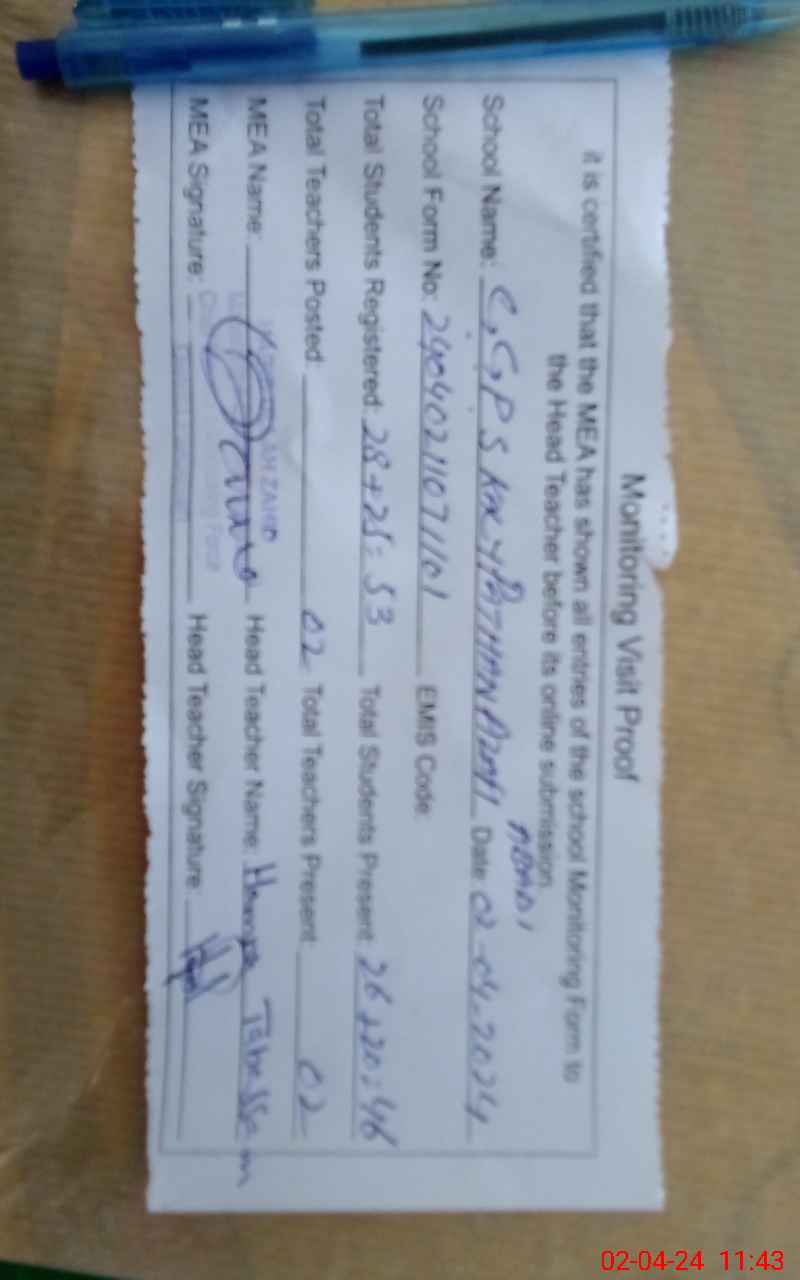 Monitoring Visit Proof
it is certified that the MEA has shown all entries of the school Monitoring Form to
the Head Teacher before its online submission.
School Name: G.G.P.S PATHAN Date: 02-04-2024
School Form No: 24040211071101 EMIS Code:
Total Students Registered: 28+25=53 Total Students Present: 26+20=46
Total Teachers Posted: 02 Total Teachers Present: 02
MEA Name: Head Teacher Name: Tabassem
MEA Signature: Head Teacher Signature:
02-04-24 11:43